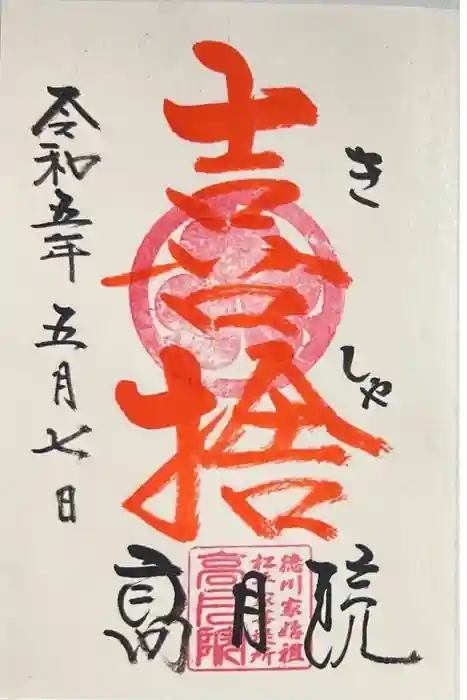 きしゃ
喜捨
令和五年
五月七日
高月院
徳川家始祖
松平家菩提所
高月院